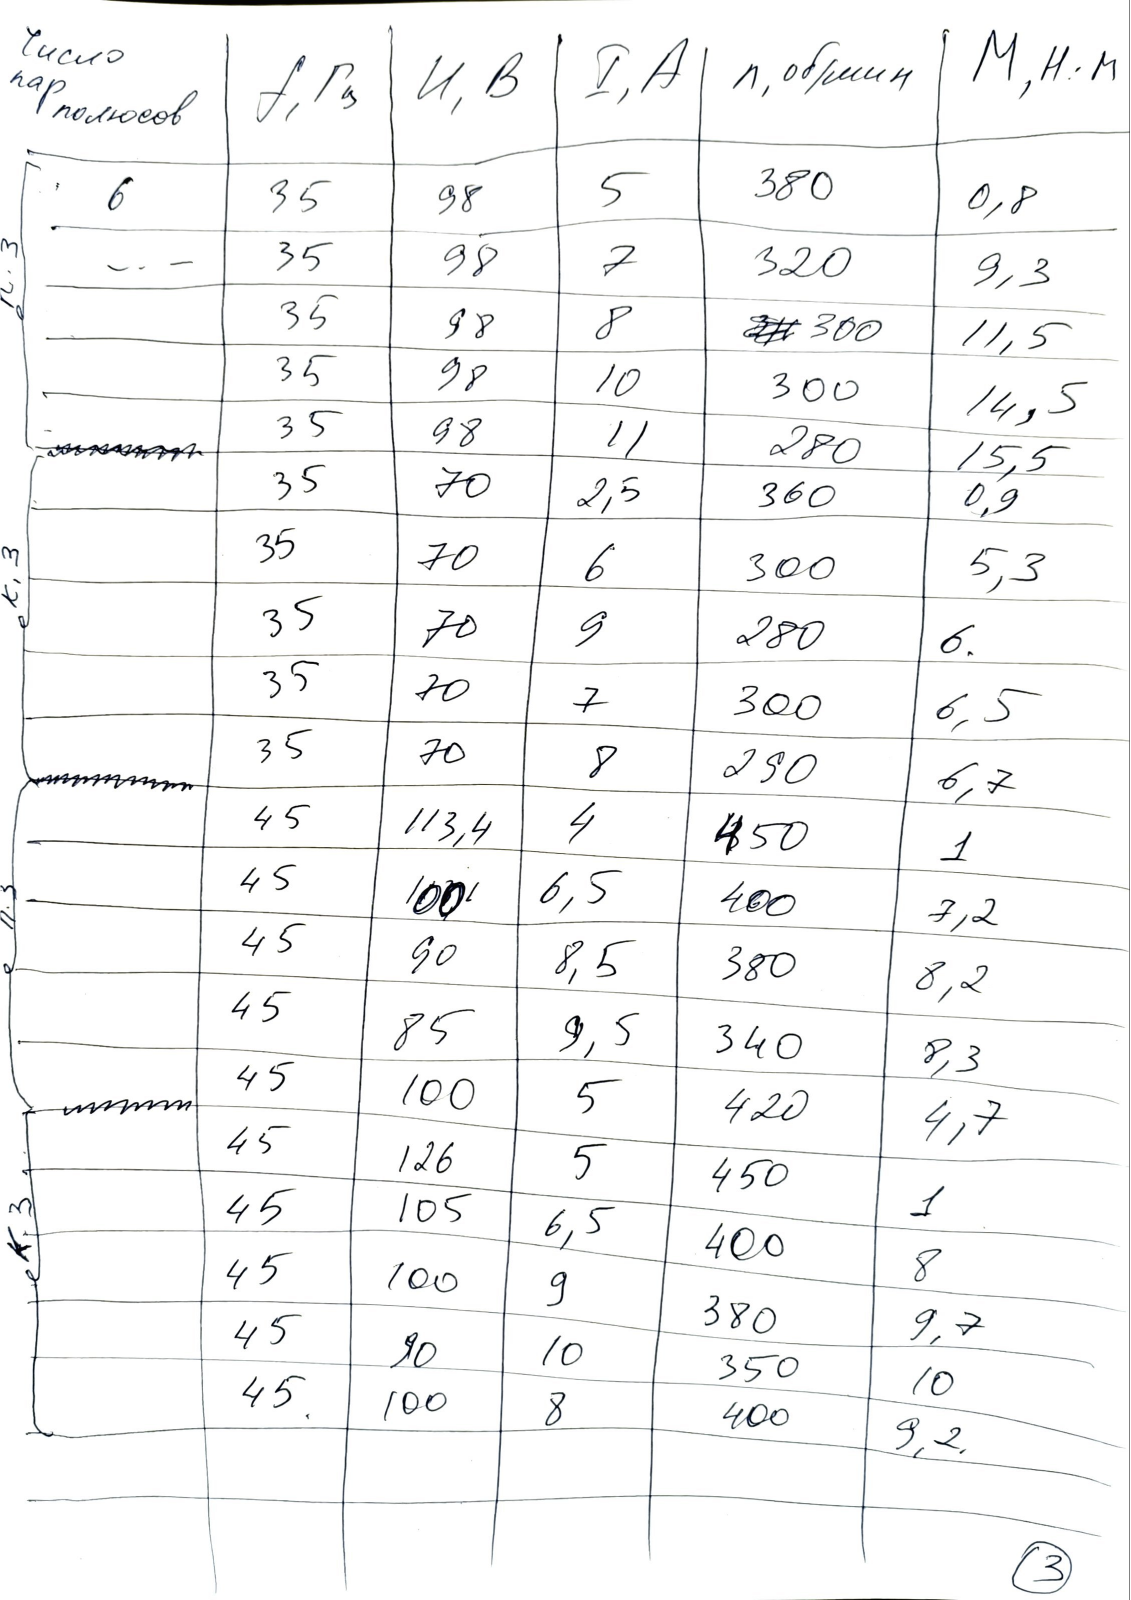 Число пар полюсов | f, Гц | U, В | I, А | n, об/мин | М, Н·м
П.З
6 | 35 | 98 | 5 | 380 | 0,8
–·– | 35 | 98 | 7 | 320 | 9,3
35 | 98 | 8 | 300 | 11,5
35 | 98 | 10 | 300 | 14,5
35 | 98 | 11 | 280 | 15,5
К.З
35 | 70 | 2,5 | 360 | 0,9
35 | 70 | 6 | 300 | 5,3
35 | 70 | 9 | 280 | 6.
35 | 70 | 7 | 300 | 6,5
35 | 70 | 8 | 290 | 6,7
П.З
45 | 113,4 | 4 | 450 | 1
45 | 100 | 6,5 | 400 | 7,2
45 | 90 | 8,5 | 380 | 8,2
45 | 85 | 9,5 | 340 | 8,3
45 | 100 | 5 | 420 | 4,7
К.З
45 | 126 | 5 | 450 | 1
45 | 105 | 6,5 | 400 | 8
45 | 100 | 9 | 380 | 9,7
45 | 90 | 10 | 350 | 10
45. | 100 | 8 | 400 | 9,2.
3